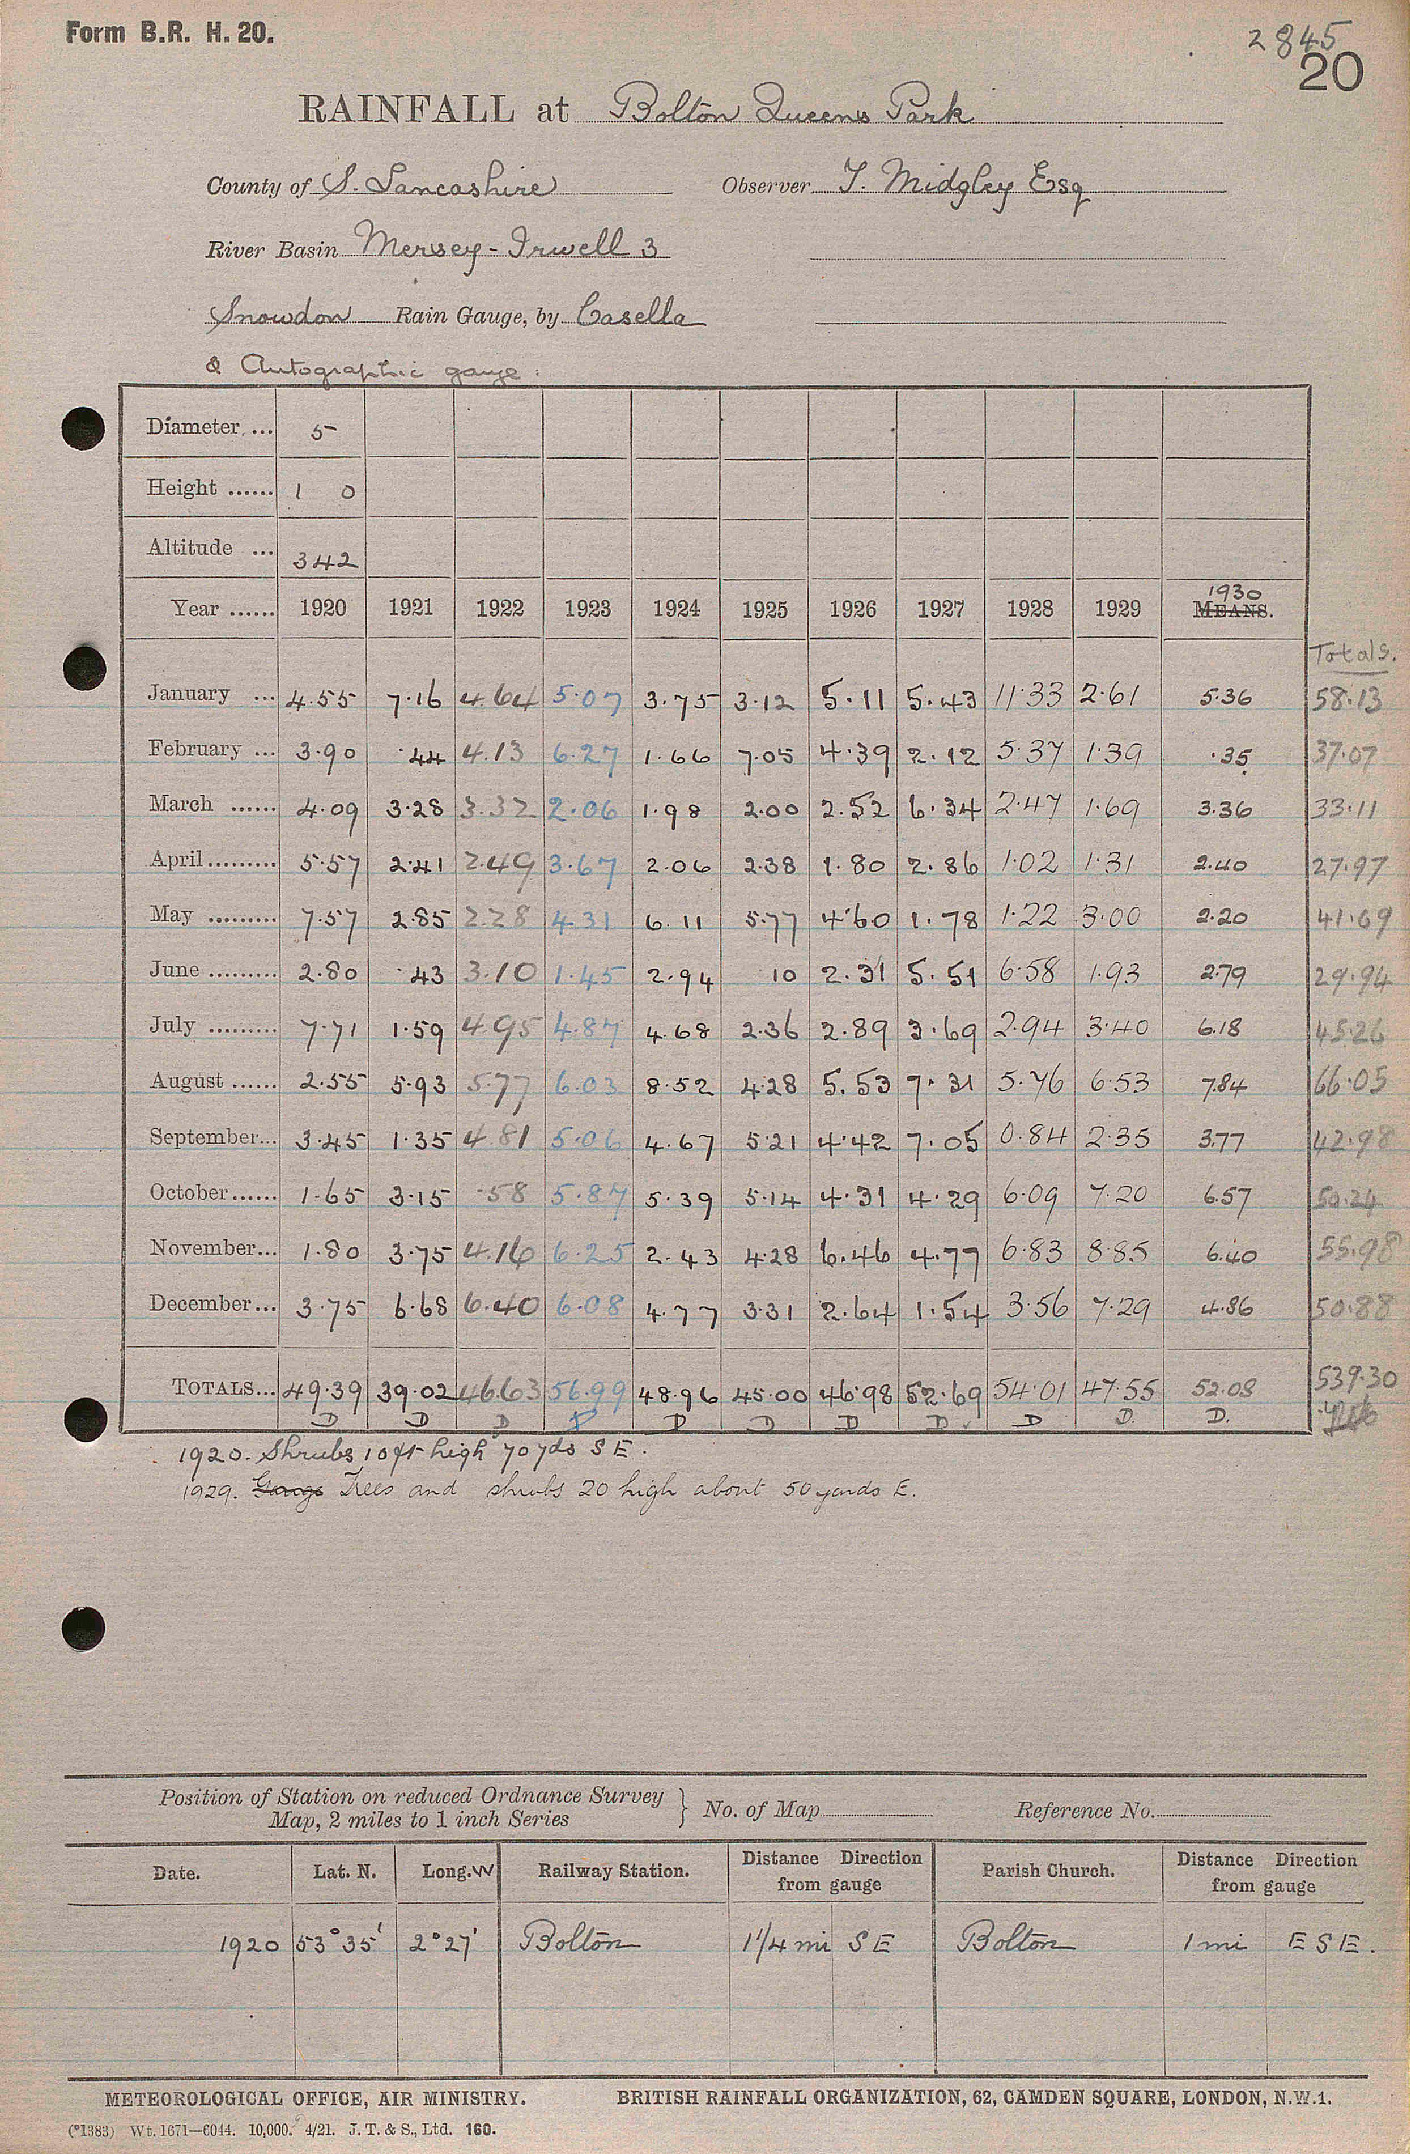 Form B.R. H. 20.
2845
20
RAINFALL at Bolton Queens Park
County of S. Lancashire Observer T. Midgley Esq
River Basin Mersey-Irwell 3
Snowdon Rain Gauge, by Casella
& Autographic gauge.
Diameter ... 5
Height ...... 1 0
Altitude ... 342
Year ...... 1920 1921 1922 1923 1924 1925 1926 1927 1928 1929 1930 MEANS.
Totals.
January ... 4.55 7.16 4.64 5.07 3.75 3.12 5.11 5.43 11.33 2.61 5.36 58.13
February ... 3.90 .44 4.13 6.27 1.66 7.05 4.39 2.12 5.37 1.39 .35 37.07
March ...... 4.09 3.28 3.32 2.06 1.98 2.00 2.52 6.34 2.47 1.69 3.36 33.11
April ......... 5.57 2.41 2.49 3.67 2.06 2.38 1.80 2.86 1.02 1.31 2.40 27.97
May ......... 7.57 2.85 2.28 4.31 6.11 5.77 4.60 1.78 1.22 3.00 2.20 41.69
June ......... 2.80 .43 3.10 1.45 2.94 10 2.31 5.51 6.58 1.93 2.79 29.94
July ......... 7.71 1.59 4.95 4.87 4.68 2.36 2.89 3.69 2.94 3.40 6.18 45.26
August ...... 2.55 5.93 5.77 6.03 8.52 4.28 5.53 7.31 5.76 6.53 7.84 66.05
September... 3.45 1.35 4.81 5.06 4.67 5.21 4.42 7.05 0.84 2.35 3.77 42.98
October...... 1.65 3.15 .58 5.87 5.39 5.14 4.31 4.29 6.09 7.20 6.57 50.24
November... 1.80 3.75 4.16 6.25 2.43 4.28 6.46 4.77 6.83 8.85 6.40 55.98
December... 3.75 6.68 6.40 6.08 4.77 3.31 2.64 1.54 3.56 7.29 4.86 50.88
TOTALS... 49.39 39.02 46.63 56.99 48.96 45.00 46.98 52.69 54.01 47.55 52.08 539.30
D D D D D D D D D D. D.
1920. Shrubs 10ft high 70 yds S E.
1929. Gauge Trees and shrubs 20 high about 50 yards E.
Position of Station on reduced Ordnance Survey
Map, 2 miles to 1 inch Series } No. of Map Reference No.
Date. Lat. N. Long. W Railway Station. Distance Direction from gauge Parish Church. Distance Direction from gauge
1920 53°35' 2°27' Bolton 1 1/4 mi S E Bolton 1 mi E S E.
METEOROLOGICAL OFFICE, AIR MINISTRY. BRITISH RAINFALL ORGANIZATION, 62, CAMDEN SQUARE, LONDON, N.W.1.
(*1383) Wt. 1671—6044. 10,000. 4/21. J. T. & S., Ltd. 160.